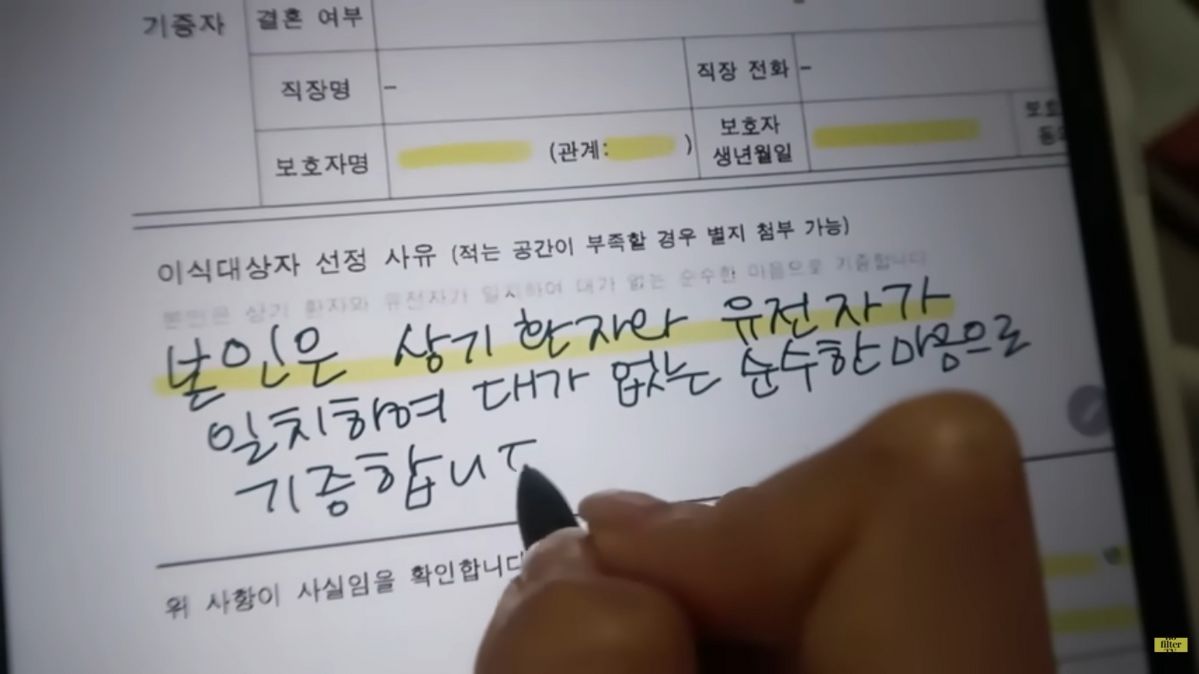 기증자 결혼 여부
직장명 - 직장 전화 -
보호자명 (관계: ) 보호자 생년월일
이식대상자 선정 사유 (적는 공간이 부족할 경우 별지 첨부 가능)
본인은 상기 환자와 유전자가 일치하여 대가 없는 순수한 마음으로 기증합니다
본인은 상기 환자와 유전자가
일치하여 대가 없는 순수한 마음으로
기증합니ㄷ
위 사항이 사실임을 확인합니다
filter